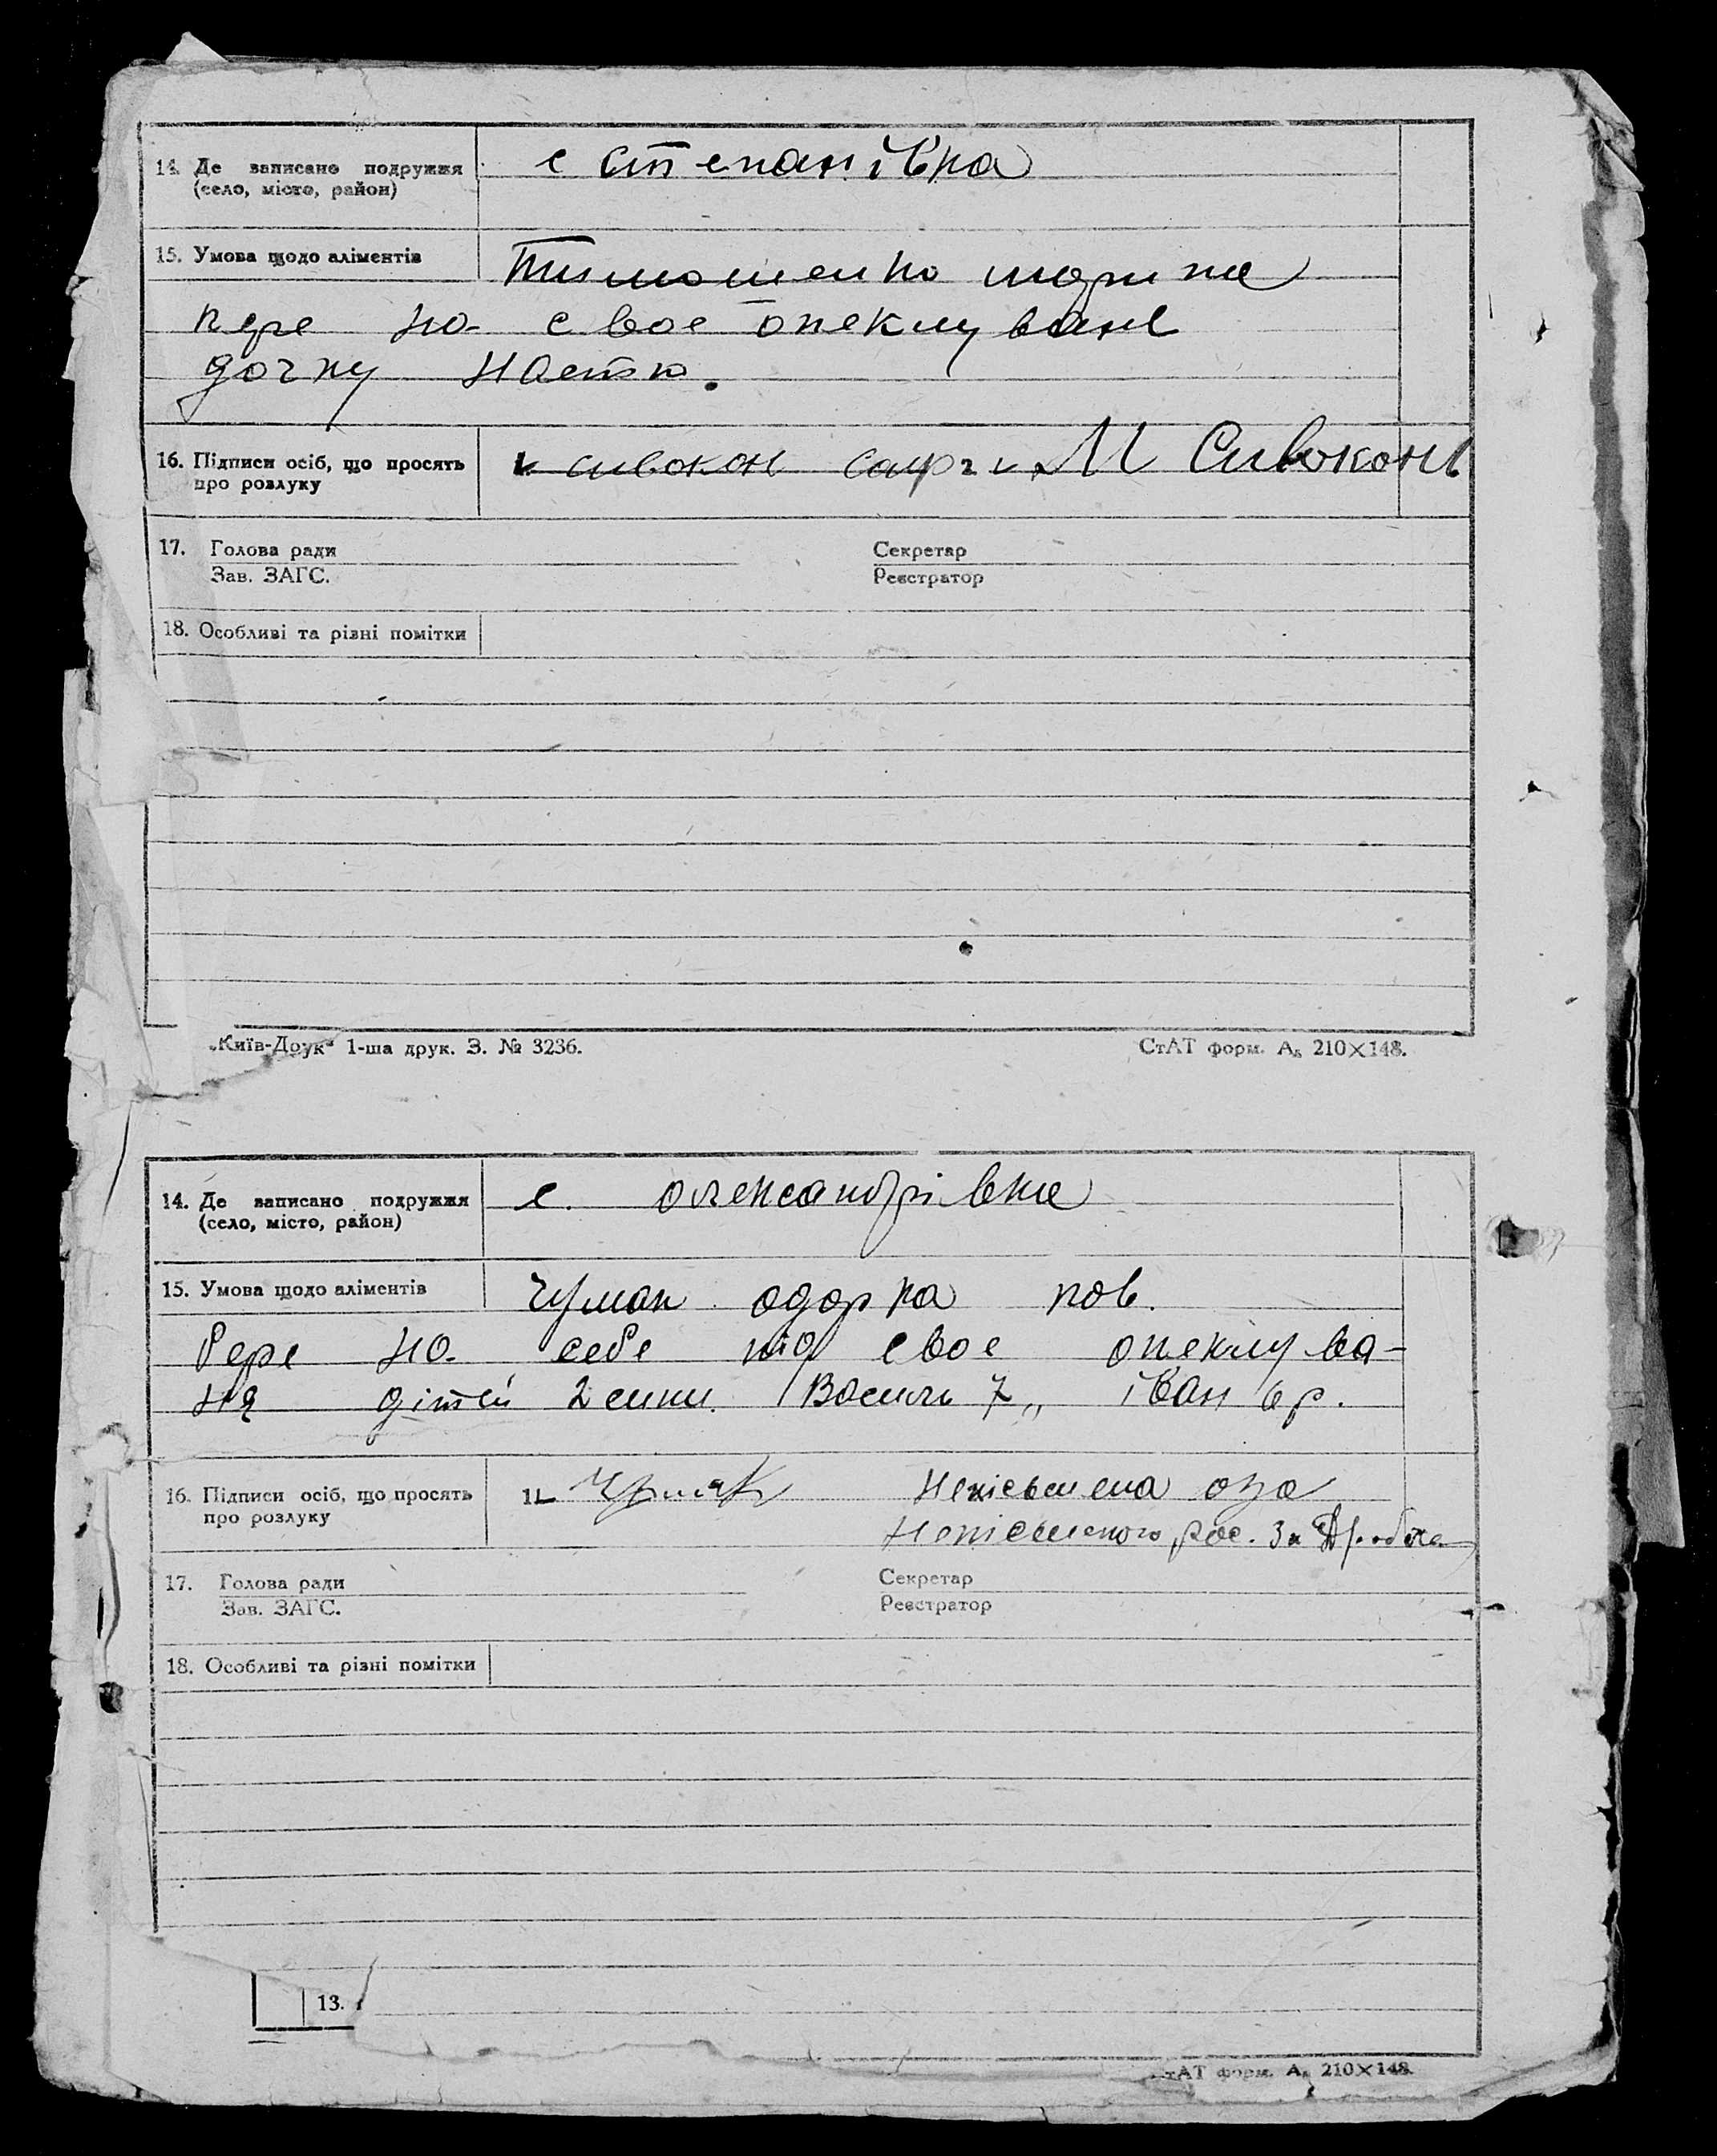 14. Де записано подружжя
(село, місто, район)
с Степанівка
15. Умова щодо аліментів
Тимошенко марика
бере на свое опеклуване
дочку настю.
16. Підписи осіб, що просять
про розлуку
сивокон М Сивоконь
17. Голова ради
Зав. ЗАГС.
Секретар
Реєстратор
18. Особливі та різні помітки
„Київ-Друк“ 1-ша друк. З. № 3236.
СтАТ форм. А₅ 210×148.
14. Де записано подружжя
(село, місто, район)
с. олександрівка
15. Умова щодо аліментів
Чумак одарка пов.
бере на себе під свое опеклува-
ня дітей 2 сини. Василь 7„ іван 6 р.
16. Підписи осіб, що просять
про розлуку
Чумак
Неписьмена
Неписьменого рос. За
17. Голова ради
Зав. ЗАГС.
Секретар
Реєстратор
18. Особливі та різні помітки
13.
тАТ форм. А₅ 210×148.